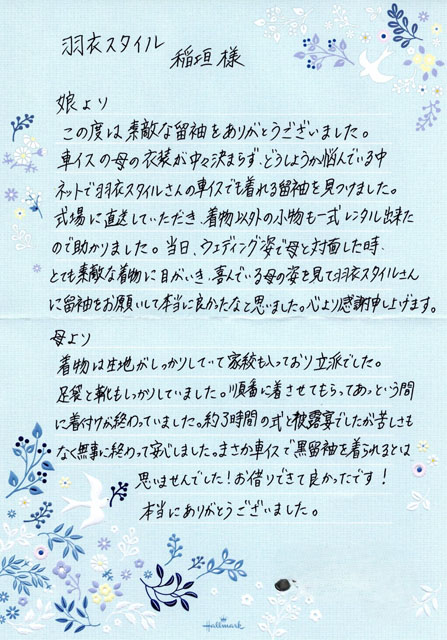 羽衣スタイル
稲垣 様
娘より
この度は素敵な留袖をありがとうございました。
車イスの母の衣装が中々決まらず、どうしようか悩んでいる中
ネットで羽衣スタイルさんの車イスでも着れる留袖を見つけました。
式場に直送していただき、着物以外の小物も一式レンタル出来た
ので助かりました。当日、ウェディング姿で母と対面した時、
とても素敵な着物に目がいき、喜んでいる母の姿を見て羽衣スタイルさん
に留袖をお願いして本当に良かたなと思いました。心より感謝申し上げます。
母より
着物は生地がしっかりしていて家紋も入っており立派でした。
足袋と靴もしっかりしていました。順番に着させてもらってあっという間
に着付けが終わっていました。約3時間の式と披露宴でしたが苦しさも
なく無事に終わって安心しました。まさか車イスで黒留袖を着られるとは
思いませんでした!お借りできて良かったです!
本当にありがとうございました。
Hallmark